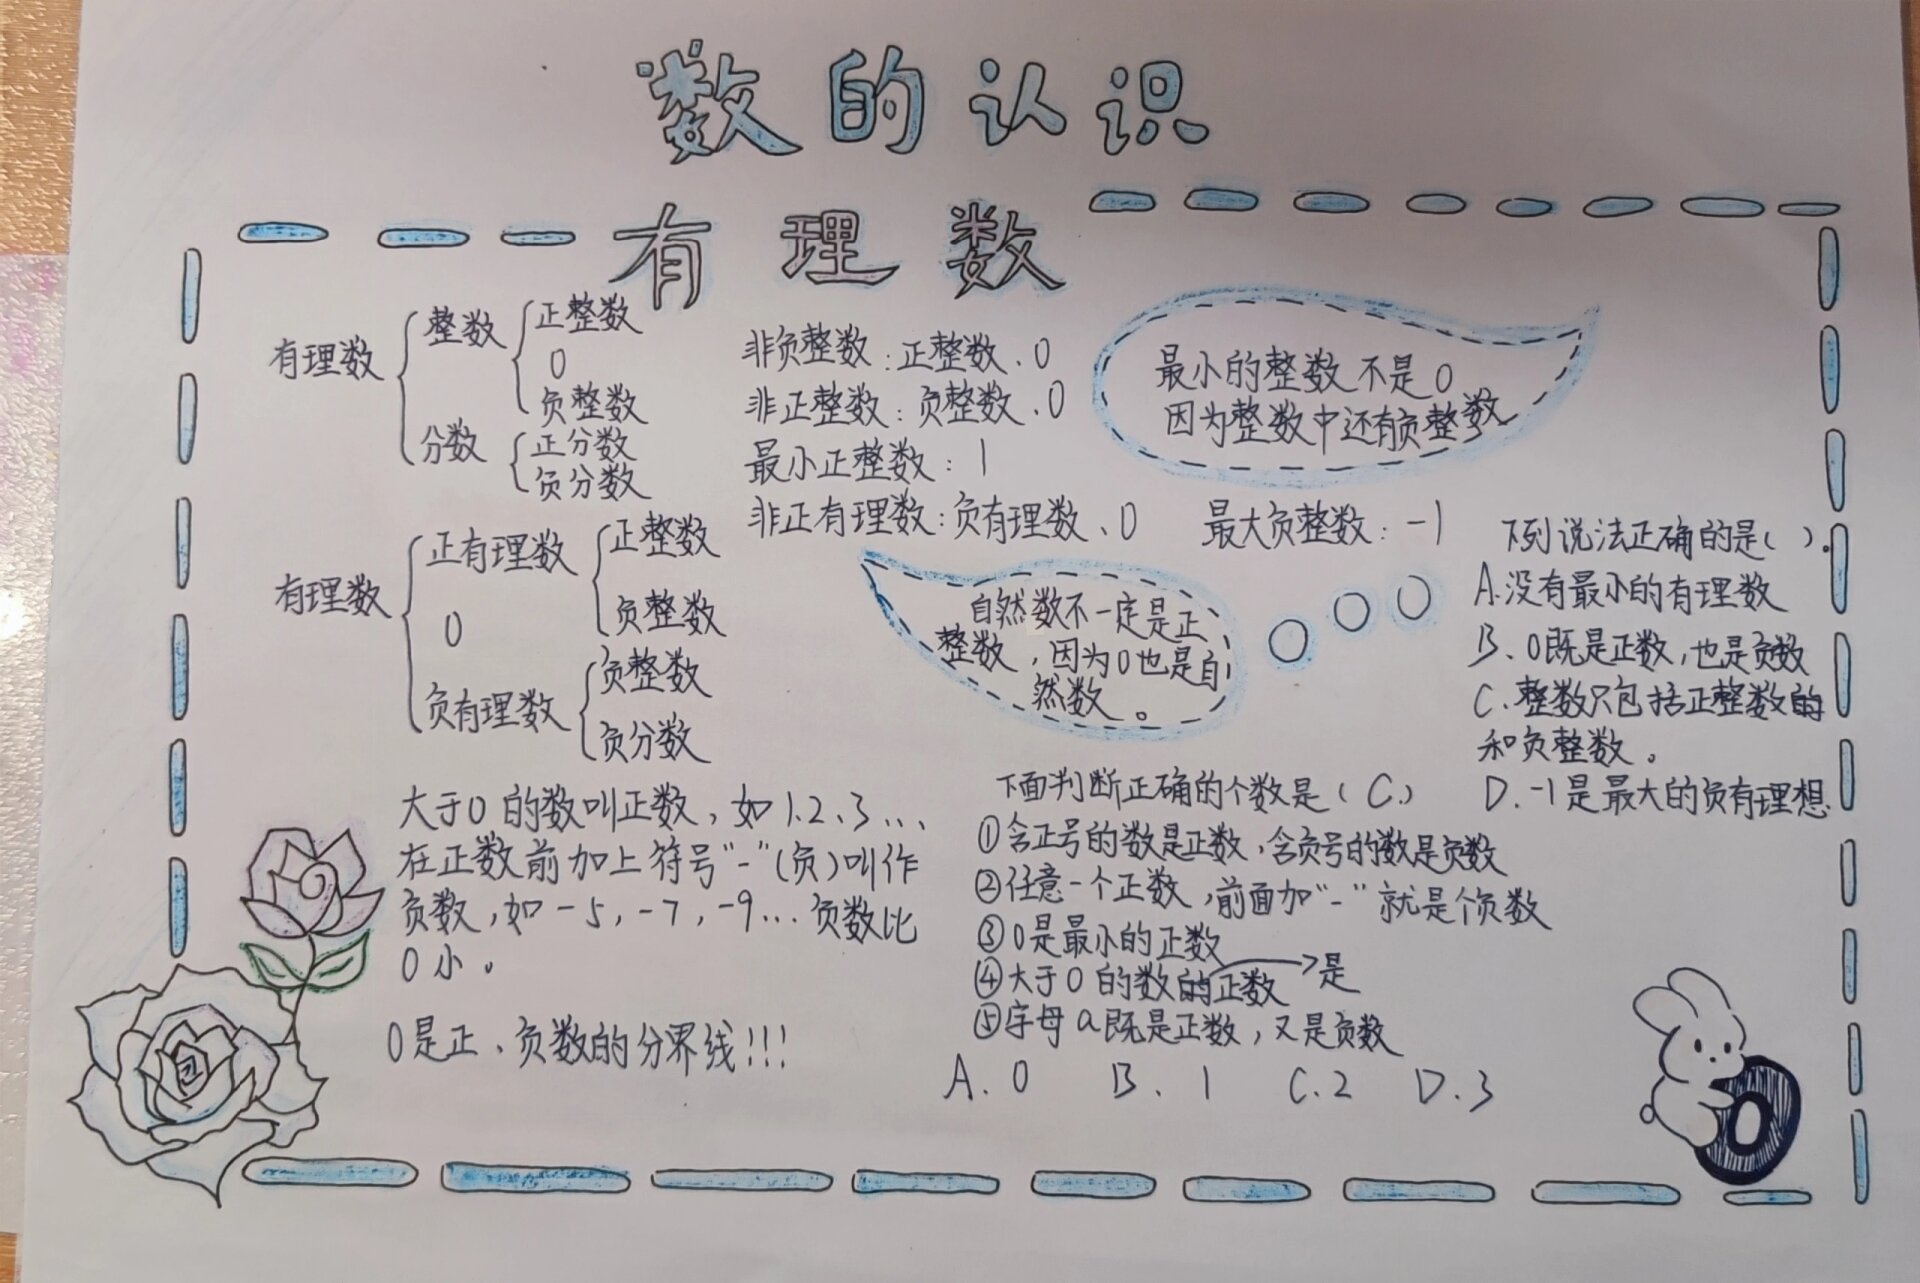 数的认识
有理数
有理数
整数
正整数
0
负整数
分数
正分数
负分数
有理数
正有理数
正整数
负整数
0
负有理数
负整数
负分数
非负整数:正整数、0
非正整数:负整数、0
最小正整数:1
非正有理数:负有理数、0
最大负整数:-1
最小的整数不是0
因为整数中还有负整数
自然数不一定是正
整数,因为0也是自
然数。
下列说法正确的是( ).
A.没有最小的有理数
B.0既是正数,也是负数
C.整数只包括正整数的
和负整数。
D.-1是最大的负有理想
大于0的数叫正数,如1.2、3...
在正数前加上符号"-"(负)叫作
负数,如-5,-7,-9...负数比
0小。
0是正、负数的分界线!!!
下面判断正确的个数是(C.)
①含正号的数是正数,含负号的数是负数
②任意一个正数,前面加"-"就是个负数
③0是最小的正数
④大于0的数的正数
是
⑤字母a既是正数,又是负数
A.0 B.1 C.2 D.3
0